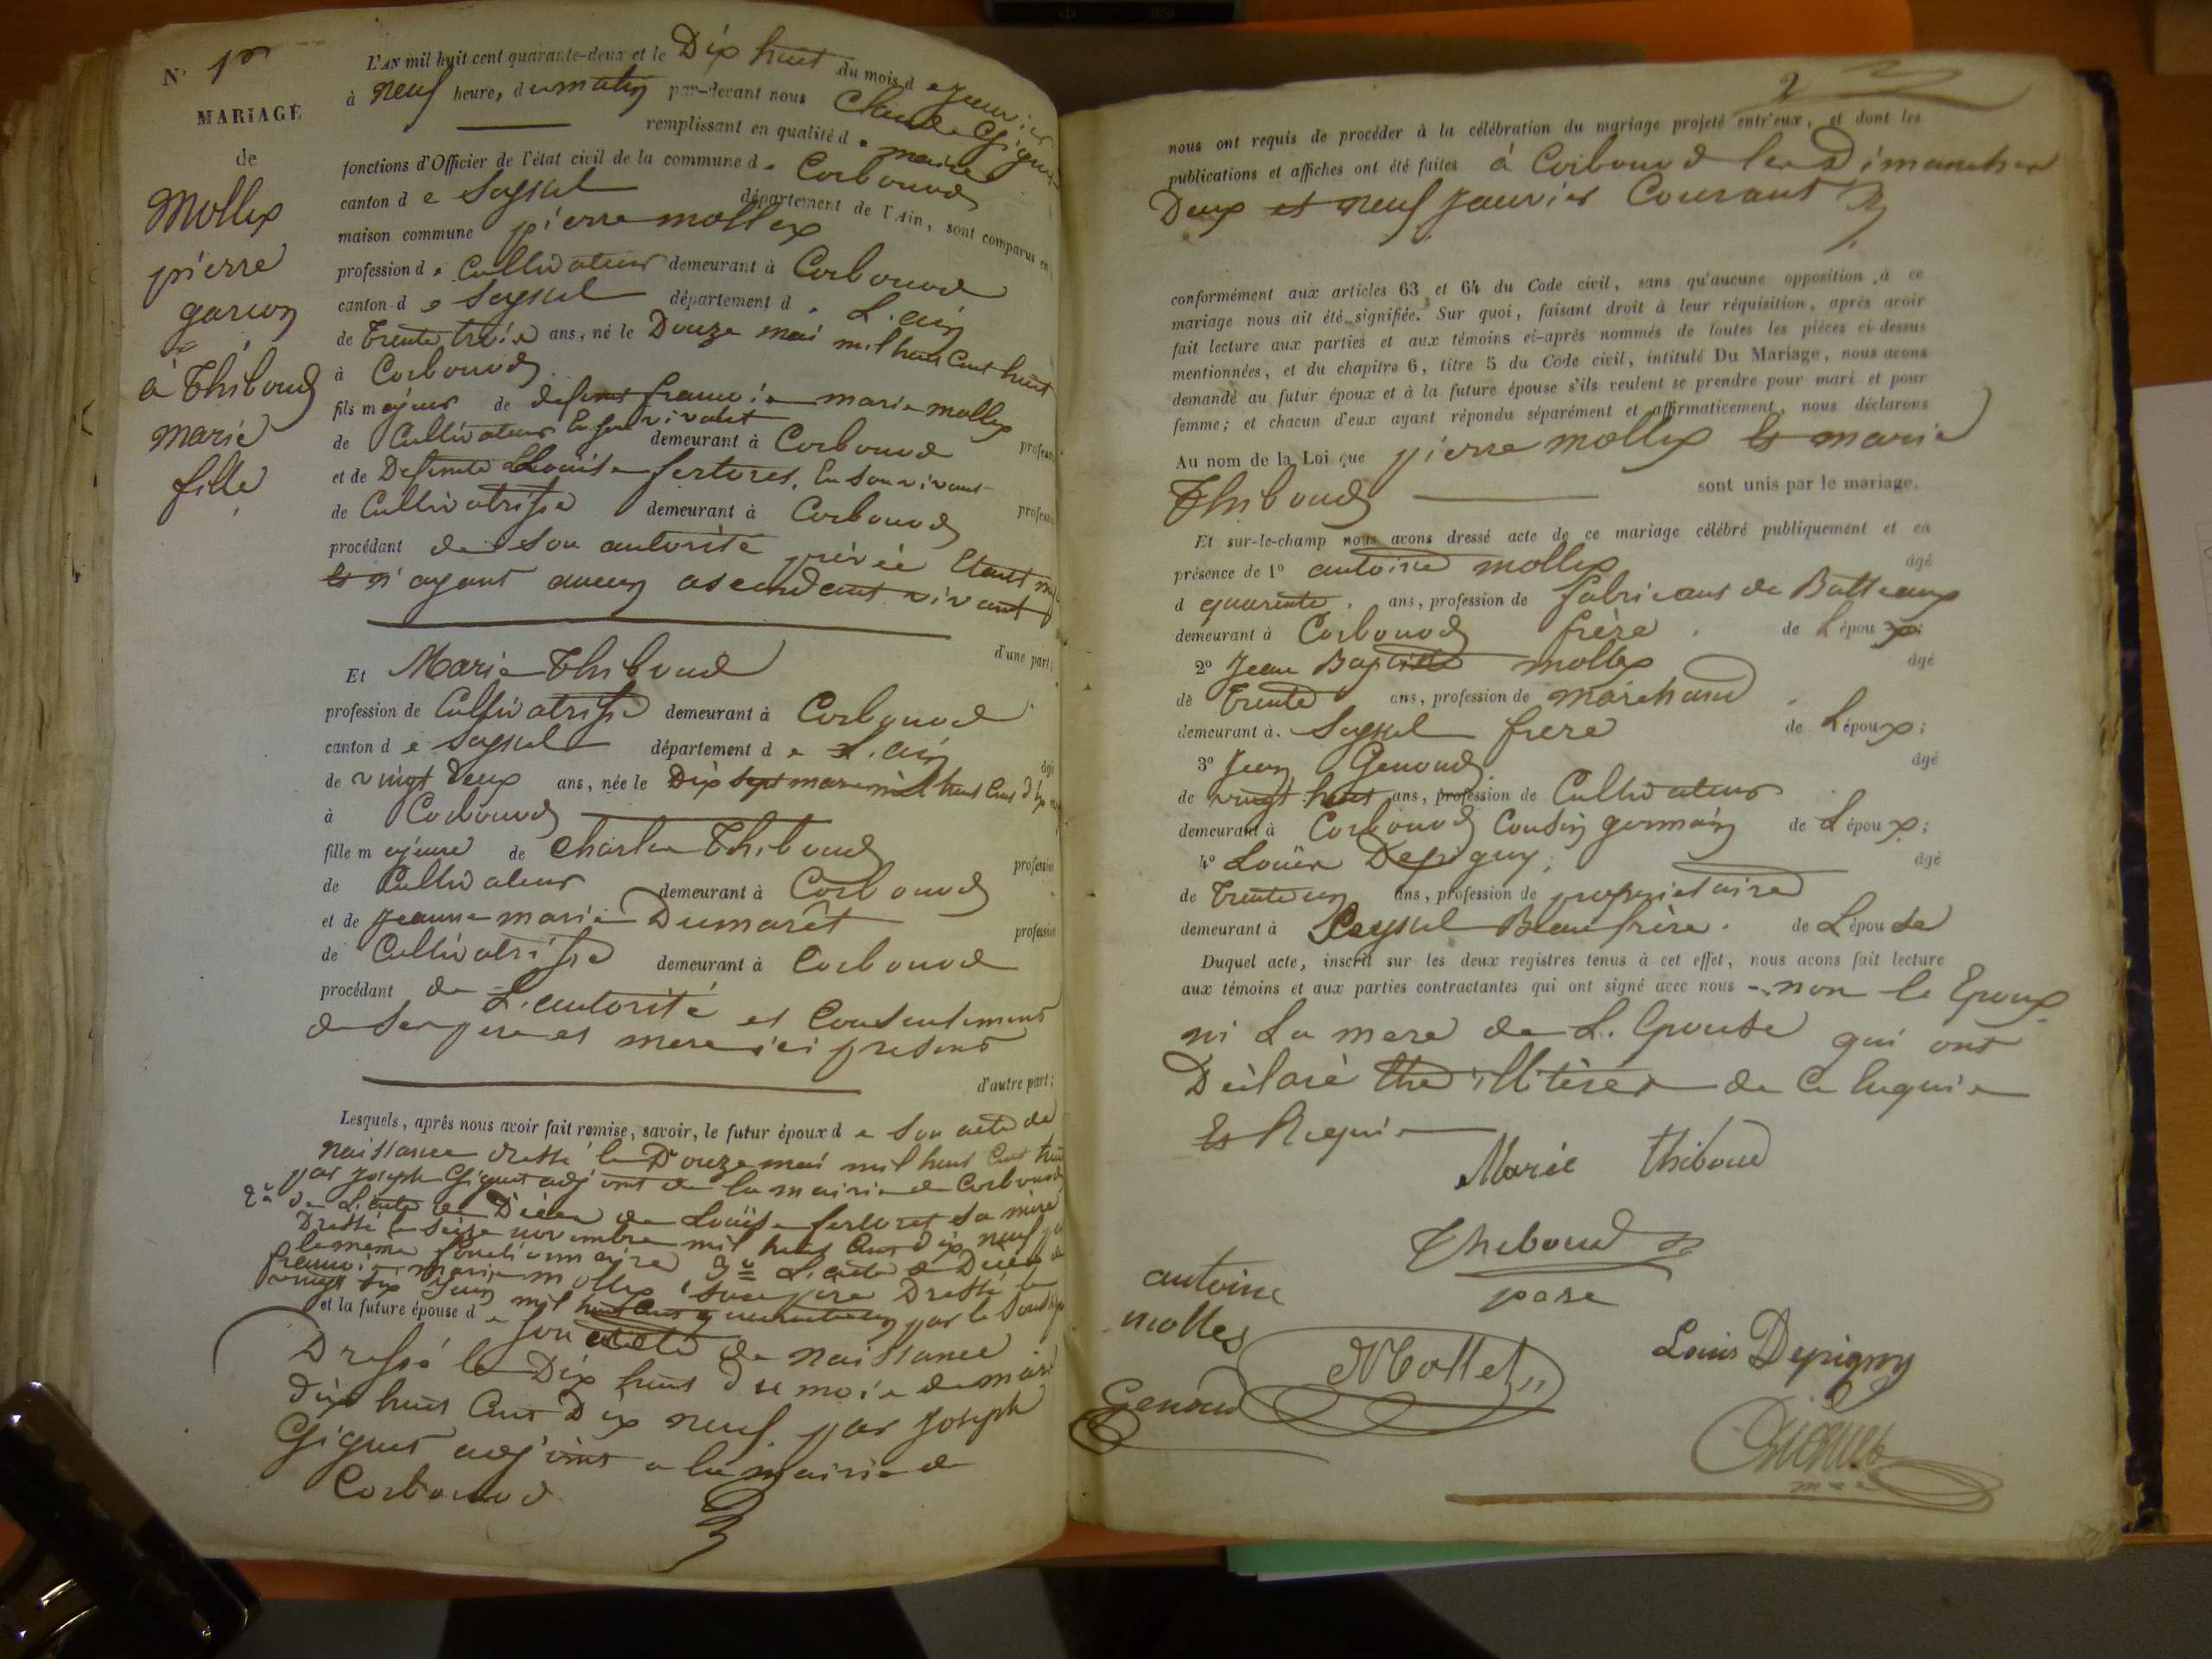 N° 1er
MARIAGE
de
Mollex
pierre
garcon
à Thiboud
marie
fille
L'AN mil huit cent quarante-deux et le Dix huit du mois de Janvier
à neuf heure, du matin par-devant nous Claude Giguet
remplissant en qualité de maire
fonctions d'Officier de l'état civil de la commune de Corbonod
canton de Seyssel département de l'Ain, sont comparus en
maison commune pierre mollex
profession de Cultivateur demeurant à Corbonod
canton de Seyssel département de L'ain
de trente trois ans, né le Douze mai mil huit Cent huit
à Corbonod
fils majeur de defunt francois marie mollex
de Cultivateur En son vivant demeurant à Corbonod profess
et de Defunte Louise fertoret, En son vivant
de Cultivatrisse demeurant à Corbonod profess
procédant de son autorité privée Etant
et n'ayant aucun ascendant vivant
d'une part;
Et Marie Thiboud
profession de Cultivatrisse demeurant à Corbonod
canton de Seyssel département de L'ain
de vingt deux ans, née le Dix sept mars mil huit Cent dix
à Corbonod
fille majeure de Charles Thiboud
de Cultivateur demeurant à Corbonod profession
et de Jeanne marie Dumarêt
de Cultivatrisse demeurant à Corbonod profession
procédant de L'autorité et Consentement
de Ses pere et mere ici present
d'autre part;
Lesquels, après nous avoir fait remise, savoir, le futur époux de Son acte de
naissance dressé le Douze mai mil huit Cent huit
par Joseph Giguet adjoint de la mairie de Corbonod
2° de L'acte de Décès de Louïse fertoret Sa mère
Dressé le seise novembre mil huit Cent dix neuf par
le même fonctionnaire 3° L'acte de Décès de
francois marie mollex son pere Dressé le
vingt six Juin mil huit Cent quarante un par le Soussigné
et la future épouse de Son acte de naissance
Dressé le Dix huit du mois de mars
dix huit Cent Dix neuf par Joseph
Giguet adjoint a la mairie de
Corbonod
2
nous ont requis de procéder à la célébration du mariage projeté entr'eux, et dont les
publications et affiches ont été faites à Corbonod les Dimanches
Deux et neuf Janvier Courant
conformément aux articles 63 et 64 du Code civil, sans qu'aucune opposition à ce
mariage nous ait été signifiée. Sur quoi, faisant droit à leur réquisition, après avoir
fait lecture aux parties et aux témoins ci-après nommés de toutes les pièces ci-dessus
mentionnées, et du chapitre 6, titre 5 du Code civil, intitulé Du Mariage, nous avons
demandé au futur époux et à la future épouse s'ils veulent se prendre pour mari et pour
femme; et chacun d'eux ayant répondu séparément et affirmativement, nous déclarons
Au nom de la Loi que pierre mollex et marie
Thiboud sont unis par le mariage.
Et sur-le-champ nous avons dressé acte de ce mariage célébré publiquement et en
présence de 1° antoine mollex âgé
d quarente ans, profession de fabricant de Batteaux
demeurant à Corbonod frère de L'époux;
2° Jean Baptiste mollex âgé
de trente ans, profession de marchand
demeurant à Seyssel frere de L'époux;
3° Jean Genoud âgé
de vingt huit ans, profession de Cultivateur
demeurant à Corbonod Cousin germain de L'époux;
4° Louïs Depigny; âgé
de trente un ans, profession de proprietaire
demeurant à Seyssel Beaufrère de L'épouse
Duquel acte, inscrit sur les deux registres tenus à cet effet, nous avons fait lecture
aux témoins et aux parties contractantes qui ont signé avec nous non le Epoux
ni La mere de L'Epouse qui ont
Déclaré être illitérés de Ce Enquis
Et Requis
Marie thiboud
Thiboud
pere
antoine
molles
Mollet
Louis Depigny
Genoud
Giguet